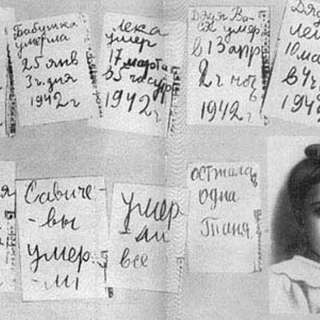 Бабушка
умерла
25 янв
3 ч. дня
1942 г
Лека
умер
17 марта
в 5 час утр
1942 г
Дядя Ва-
ся умер
в 13 апр
2 ч ноч
1942 г
Дяд
Ле
10 ма
в 4 ч
194
я
Савиче-
-вы
умер-
-ли
умер
-ли
все
осталась
одна
Таня